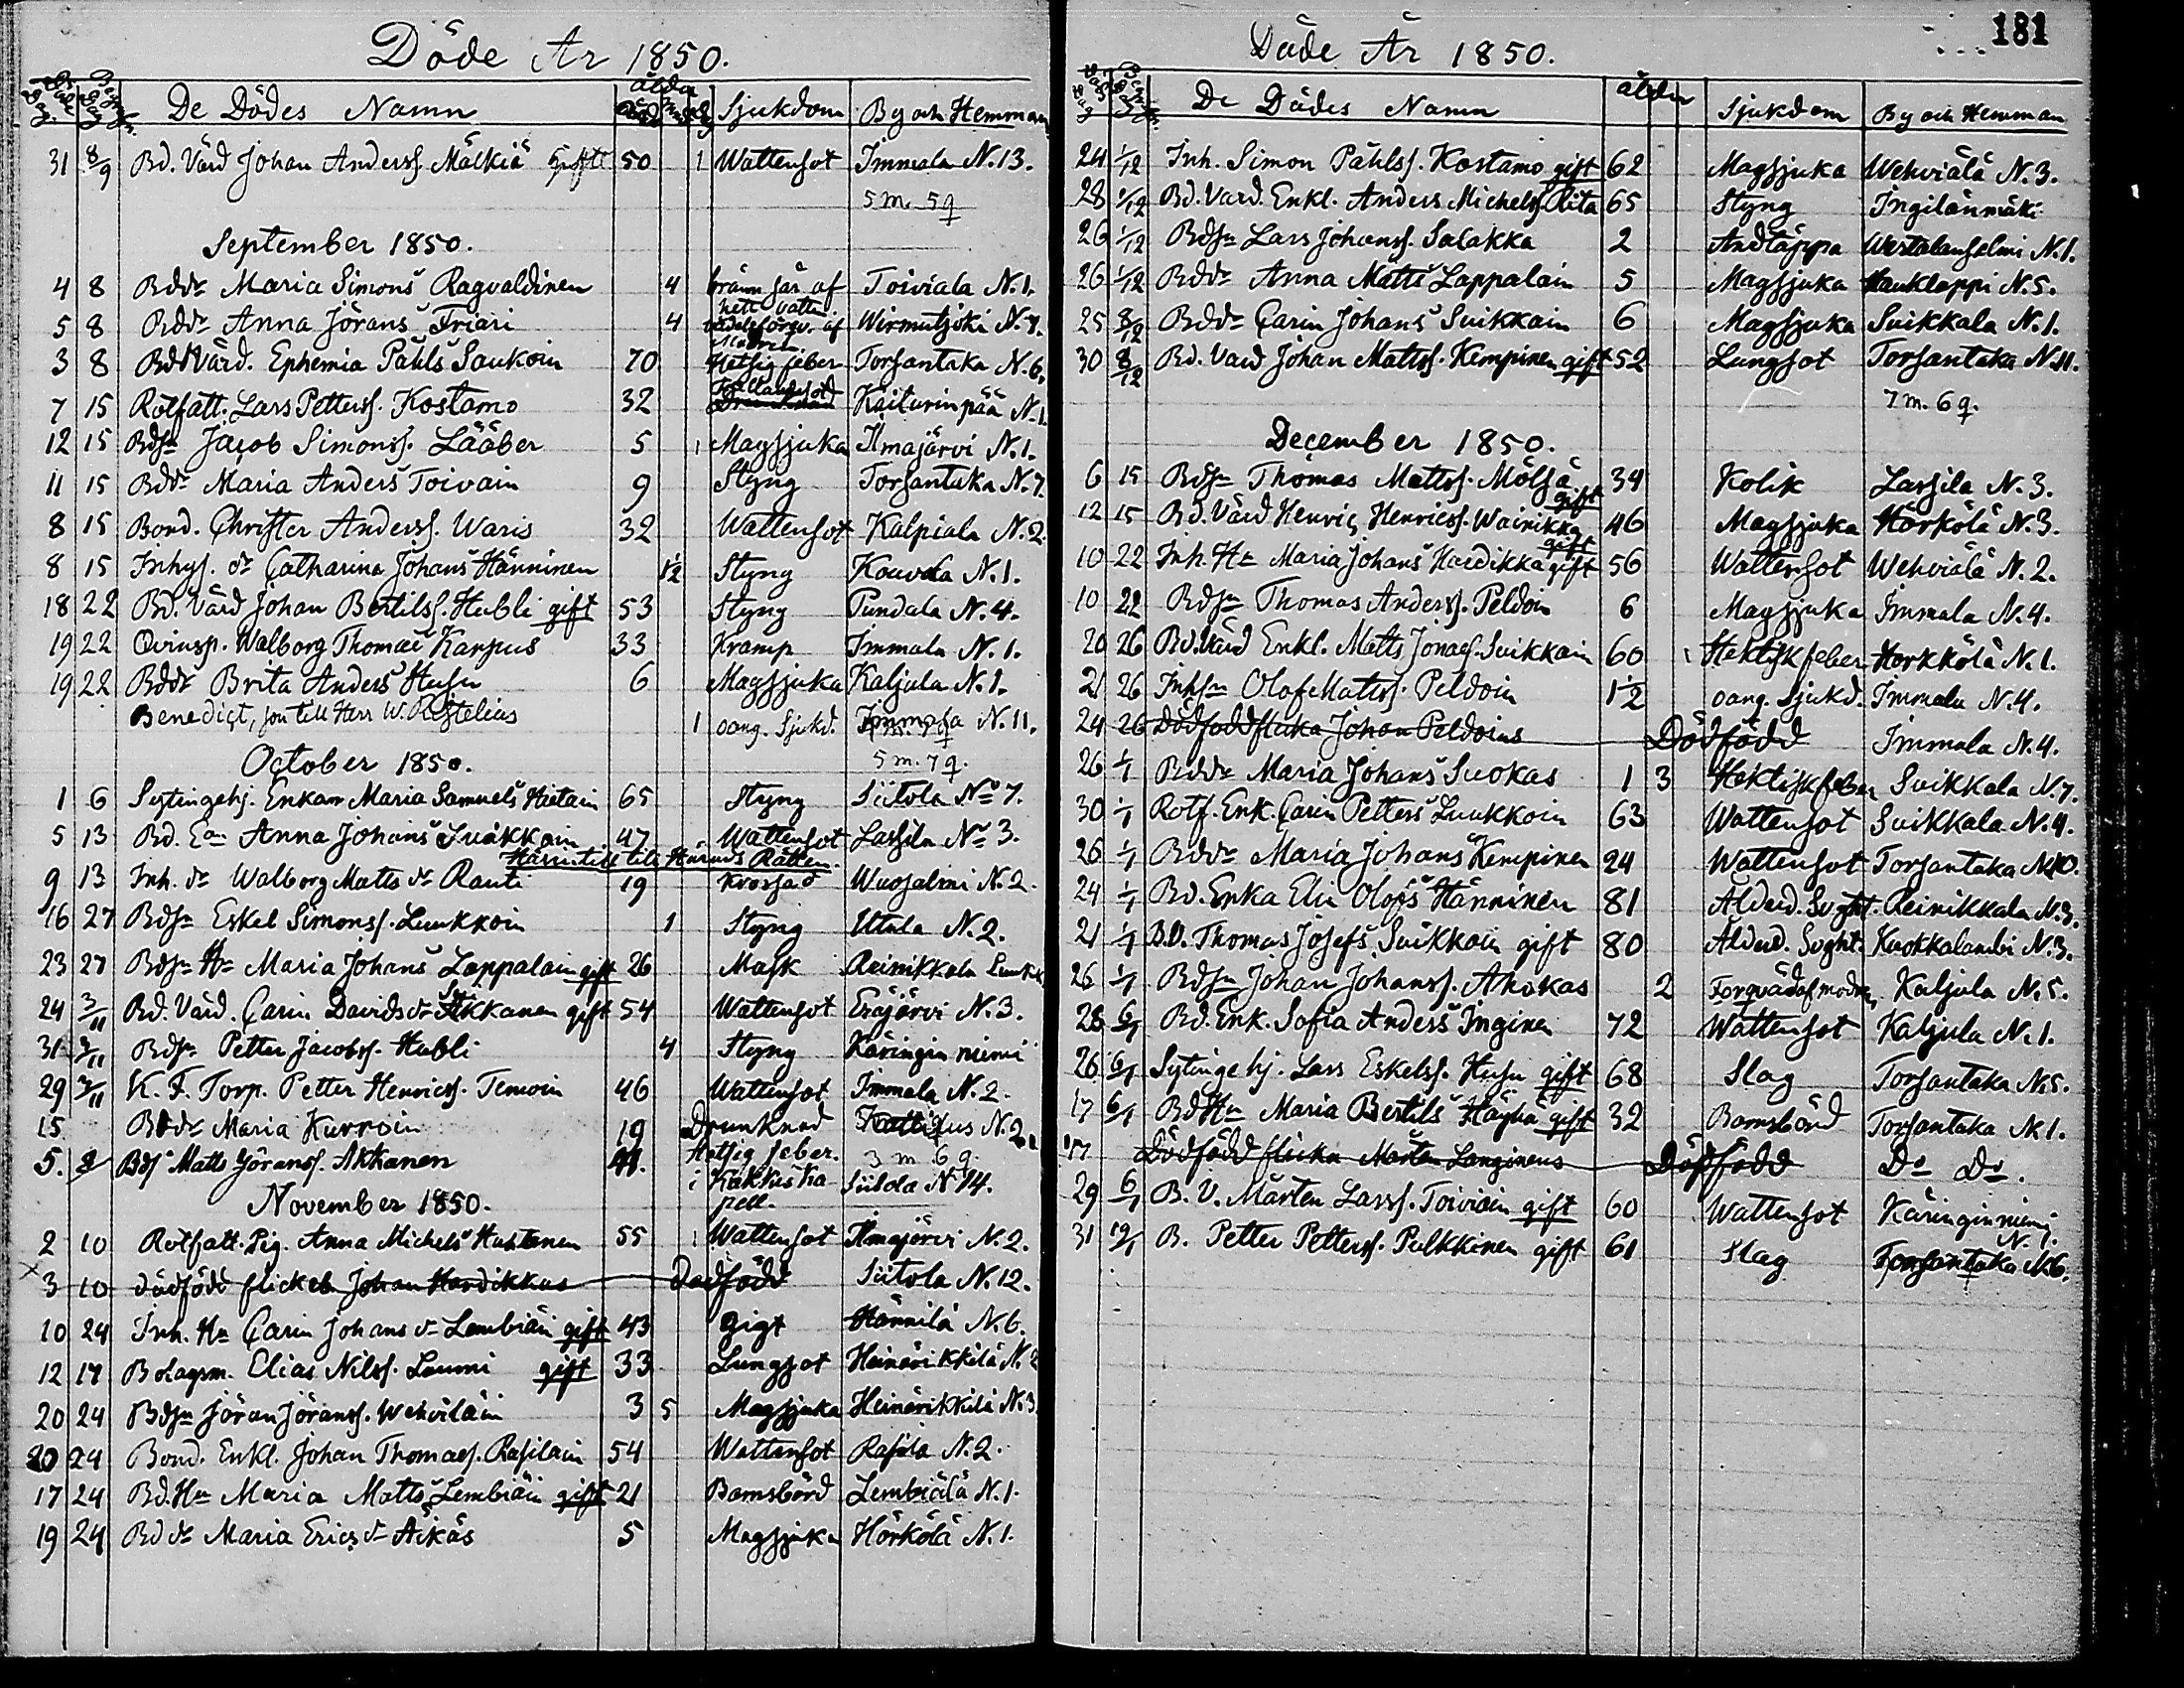 Döde År 1850.
De Dödes Namn ålder Sjukdom By och Hemman
31 8/9 Bd. Värd Johan Anderss. Mälkiä gift 50 1 Wattensot Immala N. 13.
5 m. 5 q
September 1850.
4 8 Bddr Maria Simons Ragvaldinen 4 bränn sår af Toiviala N. 1.
hett vatten.
5 8 Bddr Anna Jörans Friari 4 af Wirmutjoki N. 7.
3 8 Bd Värd. Ephemia Påhls Saukoin 70 Hetsig feber Torsantaka N. 6.
7 15 Rotfatt. Lars Petterss. Kostamo 32 Fallandesot Kaiturinpää N. 1.
12 15 Bdsn Jacob Simonss. Lääber 5 1 Magsjuka Ilmajärvi N. 1.
11 15 Bddr Maria Anders Toivain 9 Styng Torsantaka N. 7.
8 15 Bond. Christer Anderss. Waris 32 Wattensot Kalpiala N. 2.
8 15 Inhys. dr Catharina Johans Hänninen 1/2 Styng Kouvola N. 1.
18 22 Bd. Värd Johan Bertilss. Hubli gift 53 Styng Pundala N. 4.
19 22 Qvinsp. Walborg Thomae Karpus 33 Kramp Immala N. 1.
19 22 Bddr Brita Anders Husu 6 Magsjuka Kaljala N. 1.
Benedict, son till Herr W. 1 oang. Sjukd. Immala N. 11.
October 1850. 5 m. 7 q.
1 6 Sytingehj. Enkan Maria Samuels Hietain 65 Styng Siitola No 7.
5 13 Bd. Ean Anna Johans Suikkain 47 Wattensot Lassila No 3.
Härads Rätten.
9 13 Inh. dr Walborg Matts dr Rauti 19 Krossad Wuosalmi N. 2.
16 27 Bdsn Eskel Simonss. Luukkoin 1 Styng Utula N. 2.
23 27 Bdsn Hu Maria Johans Lappalain gift 26 Mask Reinikkala
24 3/11 Bd. Värd. Carin Davids dr Akkanen gift 54 Wattensot Eräjärvi N. 3.
31 3/11 Bdsn Petter Jacobss. Hubli 4 Styng Käringinniemi
29 3/11 K. F. Torp. Petter Henricss. Temoin 46 Wattensot Immala N. 2.
15 Bddr Maria Kurroin 19 Drunknad N. 2.
5. 8 Bds Matts Jöranss. Akkanen 41. Hetsig feber. 3 m 6 q.
i Käkkis ka- Siitola N 14.
pell.
November 1850.
2 10 Rotfatt. Pig. Anna Michels Huhtanen 55 Wattensot Ilmajärvi N. 2.
x 3 10 dödfödd flicka Johan Hardikkas Dödfödd Siitola N. 12.
10 24 Inh. Hu Carin Johans dr Lembiäin gift 43 Gigt Hännilä N. 6.
12 17 Bolagsm. Elias Nilss. Laumi gift 33 Lungsot Heinärikkilä N. 2
20 24 Bdsn Jöran Jöranss. Wehviläin 3 5 Magsjuka Heinärikkilä N. 3.
20 24 Bond. Enkl. Johan Thomass. Rasilain 54 Wattensot Rasila N. 2.
17 24 Bd. Hu Maria Matts Lembiäin gift 21 Barnsbörd Lembiälä N. 1.
19 24 Bd dr Maria Erics dr Äikäs 5 Magsjuka Hörkölä N. 1.
181
Döde År 1850.
De Dödes Namn ålder Sjukdom By och Hemman
24 1/12 Inh. Simon Påhlss. Kostamo gift 62 Magsjuka Wehviälä N. 3.
28 1/12 Bd. Värd. Enkl. Anders Michelss. Rita 65 Styng Ingilänmäki
26 1/12 Bdsn Lars Johanss. Salakka 2 Andtäppa Wertalansalmi N. 1.
26 1/12 Bddr Anna Matts Lappalain 5 Magsjuka Haukloppi N. 5.
25 8/12 Bddr Carin Johans Suikkain 6 Magsjuka Suikkala N. 1.
30 8/12 Bd. Värd Johan Matss. Kempinen gift 52 Lungsot Torsantaka N. 11.
7 m. 6 q.
December 1850.
6 15 Bdsn Thomas Mattss. Mölsä gift 34 Kolik Lassila N. 3.
12 15 Bd. Värd Henric Henricss. Wainikka gift 46 Magsjuka Hörkölä N. 3.
10 22 Inh. Hu Maria Johans Hardikka gift 56 Wattensot Wehviälä N. 2.
10 22 Bdsn Thomas Anderss. Peldoin 6 Magsjuka Immala N. 4.
20 26 Bd. Värd Enkl. Matts Jonaes. Suikkain 60 Hektisk feber Horkkölä N. 1.
21 26 Inhsn Olof Mattss. Peldoin 1/2 oang. Sjukd. Immala N. 4.
24 26 Dödfödd flicka Johan Peldoins Dödfödd Immala N. 4.
26 1/1 Bddr Maria Johans Suokas 1 3 Hektisk feber Suikkala N. 7.
30 1/1 Rotf. Enk. Carin Petters Luukkoin 63 Wattensot Suikkala N. 4.
26 1/1 Bddr Maria Johans Kempinen 24 Wattensot Torsantaka N. 10.
24 1/1 Bd. Enka Elin Olofs Hänninen 81 Ålderd. Svght. Reinikkala N. 3.
21 1/1 B. V. Thomas Josefs. Suikkoin gift 80 Ålderd. Svght. Kuokkalambi N. 3.
26 1/1 Bdsn Johan Johanss. Ahokas 2 Förqväd af modren Kaljala N. 5.
28 6/1 Bd. Enk. Sofia Anders Inginen 72 Wattensot Kaljala N. 1.
26 6/1 Sytingehj. Lars Eskelss. Husu gift 68 Slag Torsantaka N. 5.
17 6/1 Bd Hu Maria Bertils Häyhä gift 32 Barnsbörd Torsantaka N. 1.
17 Dödfödd flicka Mårten Langinens Dödfödd Do Do.
29 6/1 B. V. Mårten Larss. Toiviain gift 60 Wattensot Käringinniemi
N. 1.
31 12/1 B. Petter Petterss. Pulkkinen gift 61 Slag Torsantaka N. 6.